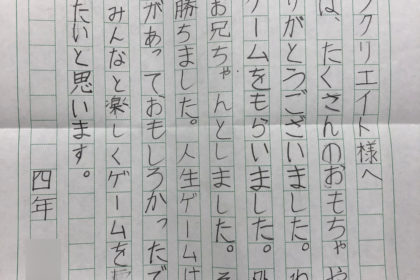 クリエイト様へ
は、たくさんのおもちゃや
りがとうございました。
ゲームをもらいました。
お兄ちゃんとしました。そ
勝ちました。人生ゲームは
があっておもしろかったで
みんなと楽しくゲームを
たいと思います。
四年